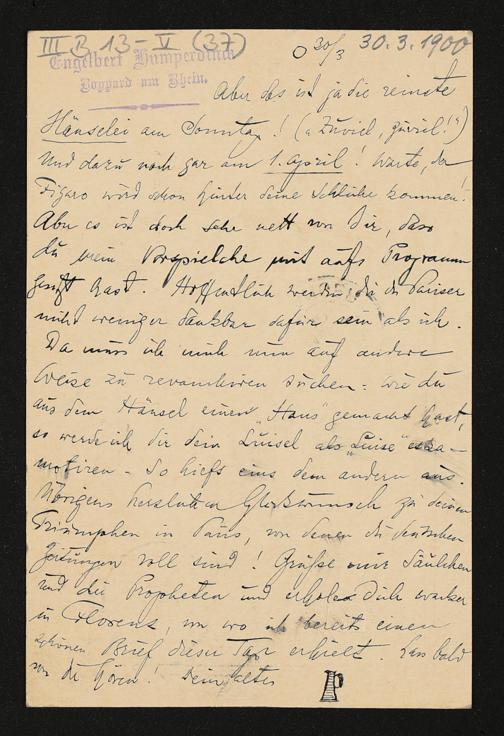 III B. 13 - V (37)
Engelbert Humperdinck
Boppard am Rhein.
30/3 30.3.1900
Aber das ist ja die reinste
Hänselei am Sonntag! (a "Zuviel, zuviel!")
Und dazu noch gar am 1. April! Warte, der
Figaro wird schon hinter deine Schliche kommen!
Aber es ist doch sehr nett von Dir, dass
du mein Vorspielche mit aufs Programm
gesetzt hast. Hoffentlich werden dir die Pariser
nicht weniger dankbar dafür sein als ich.
Da muss ich mich nun auf andere
Weise zu revanchiren suchen: wie du
aus dem Hänsel einen "Hans" gemacht hast,
so werde ich dir dein Luisel als "Luise" eska-
motiren - So hiefs eins dem andern aus.
Übrigens herzlichen Glückwunsch zu deinen
Triumphen in Paris, von denen die deutschen
Zeitungen voll sind! Grüße mir
und die Propheten und erhole Dich wacker
in Florenz, von wo ich bereits einen
schönen Brief dieser Tage erhielt. Lass bald
von dir hören! Dein alter